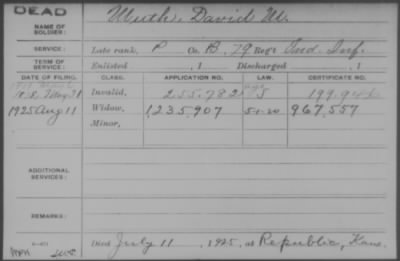 DEAD
NAME OF SOLDIER: Muth, David M.
SERVICE: Late rank, P Co. B, 79 Reg't Ind. Inf.
TERM OF SERVICE: Enlisted , 1 Discharged , 1
DATE OF FILING. CLASS. APPLICATION NO. LAW. CERTIFICATE NO.
Invalid, 255.782
1925 Aug 11 Widow, 1,235,907 5-1-20 967,557
Minor,
ADDITIONAL SERVICES:
REMARKS:
Died July 11, 1925, at Republic, Kans.